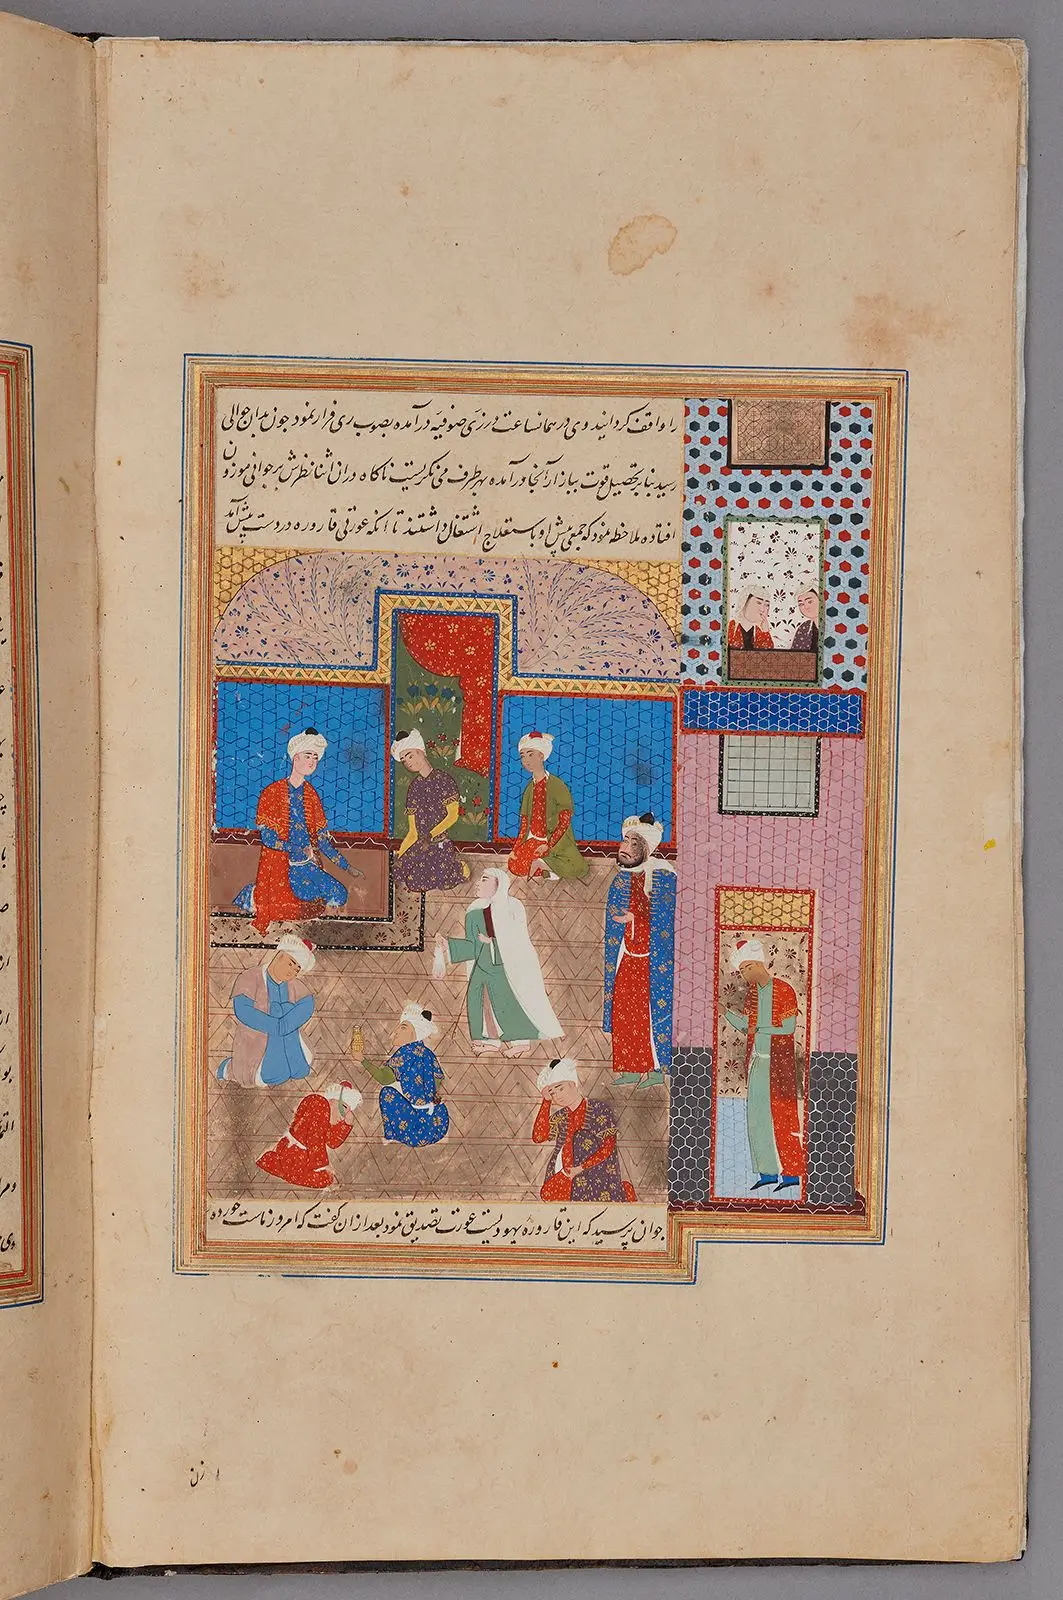 را واقف گردانیدند وی در همان ساعت در زی صوفیه درآمده بصوب ری فرار نمود چون بدان حوالی
رسید بنابر تحصیل قوت ببازار آنجا درآمده بهر طرف می نگریست ناکاه در ان اثنا نظرش بر جوانی موزون
افتاده ملاحظه نمود که جمعی پیش او باستعلاج اشتغال داشتند تا آنکه عورتی قاروره در دست پیش آمد
جوان پرسید که این قاروره یهودیست عورت تصدیق نمود بعد از ان کفت که امروز ماست خورده
زن